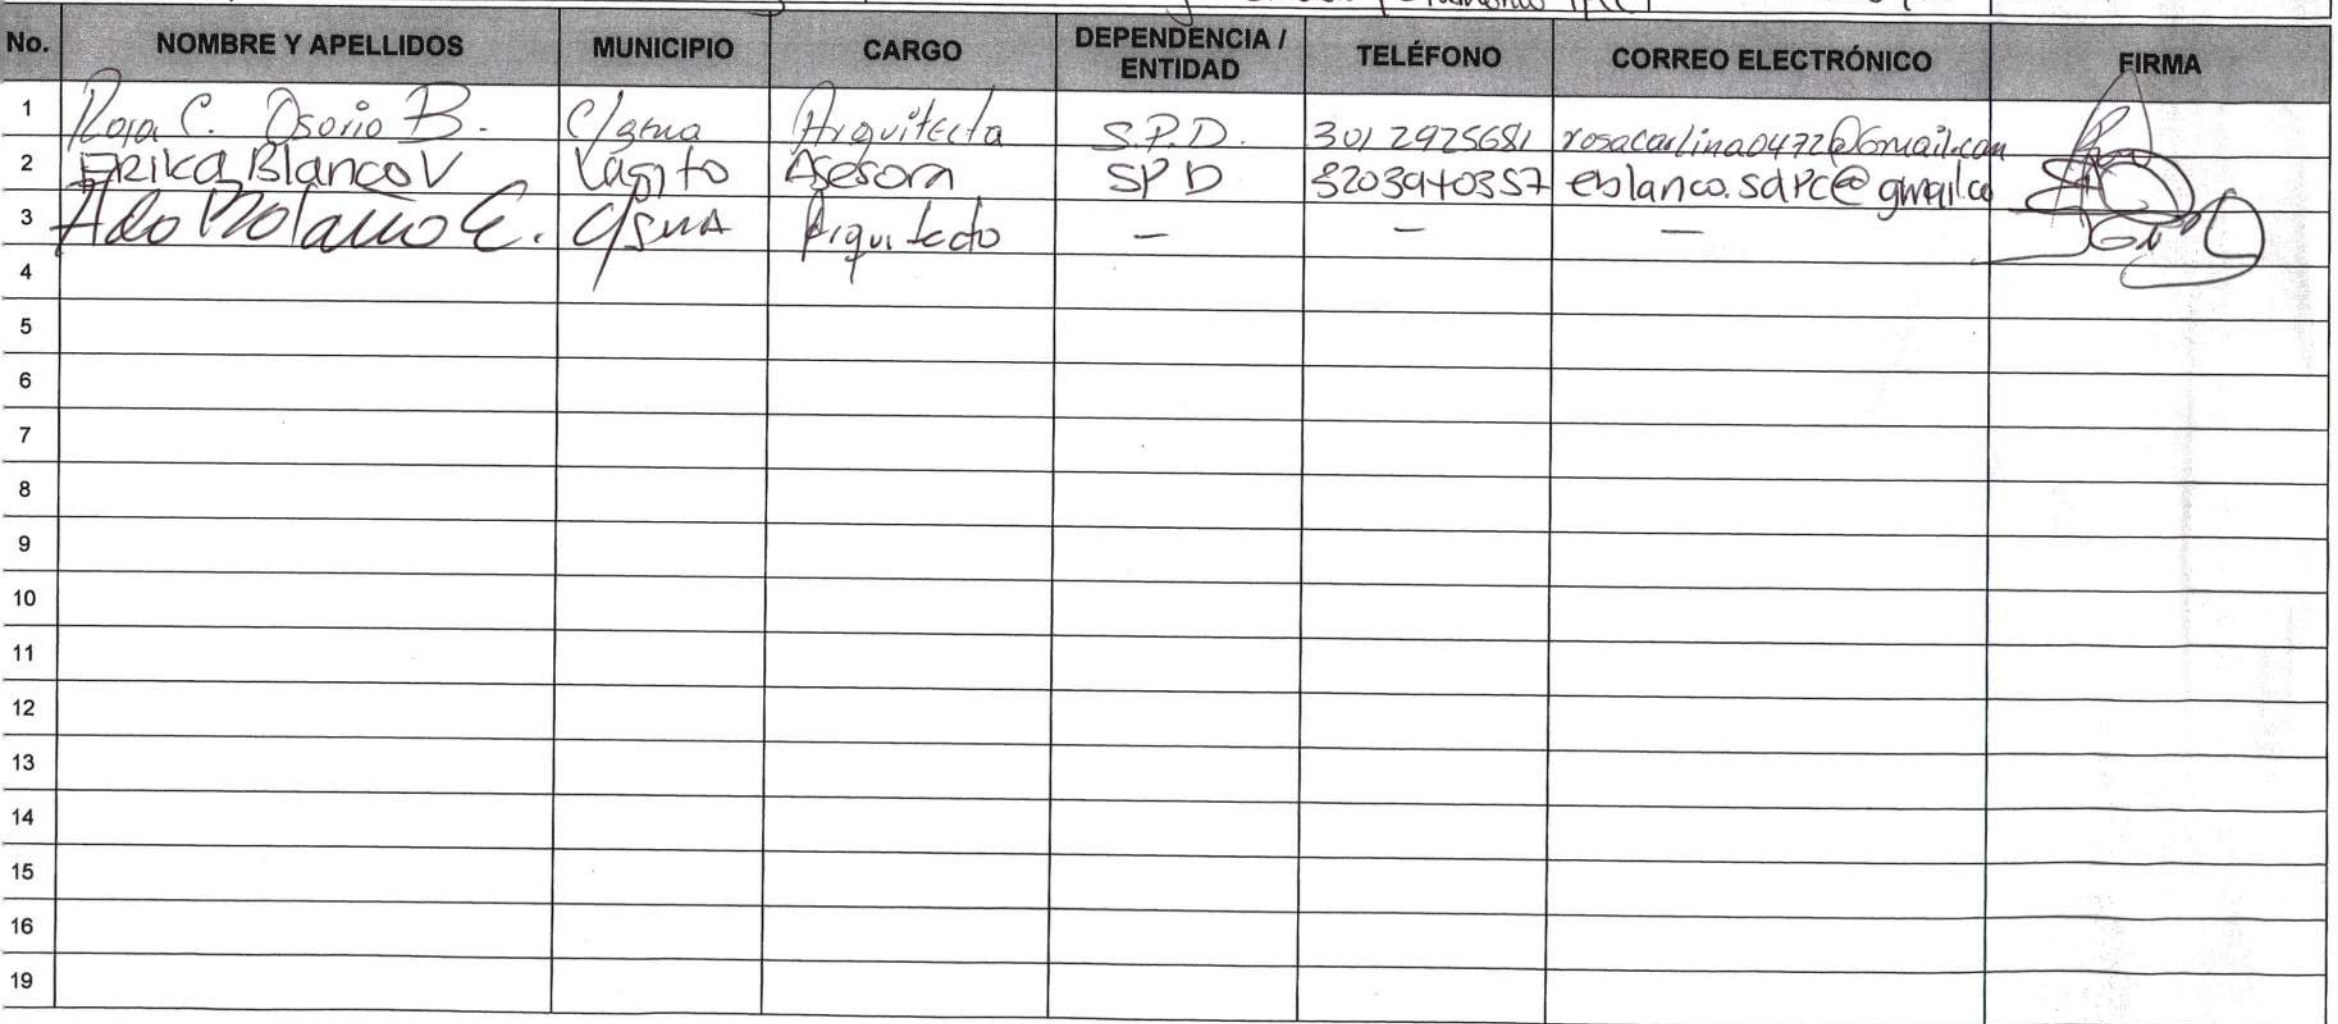 No. NOMBRE Y APELLIDOS MUNICIPIO CARGO DEPENDENCIA / ENTIDAD TELÉFONO CORREO ELECTRÓNICO FIRMA
1 Rosa C. Osorio B. C/gena Arquitecta S.P.D. 301 2925681 rosacarlina0472@Gmail.com
2 Erika Blanco V Asesora SPD eblanco.sdpc@gmail.co
3 Arquitecto — — —
4
5
6
7
8
9
10
11
12
13
14
15
16
19